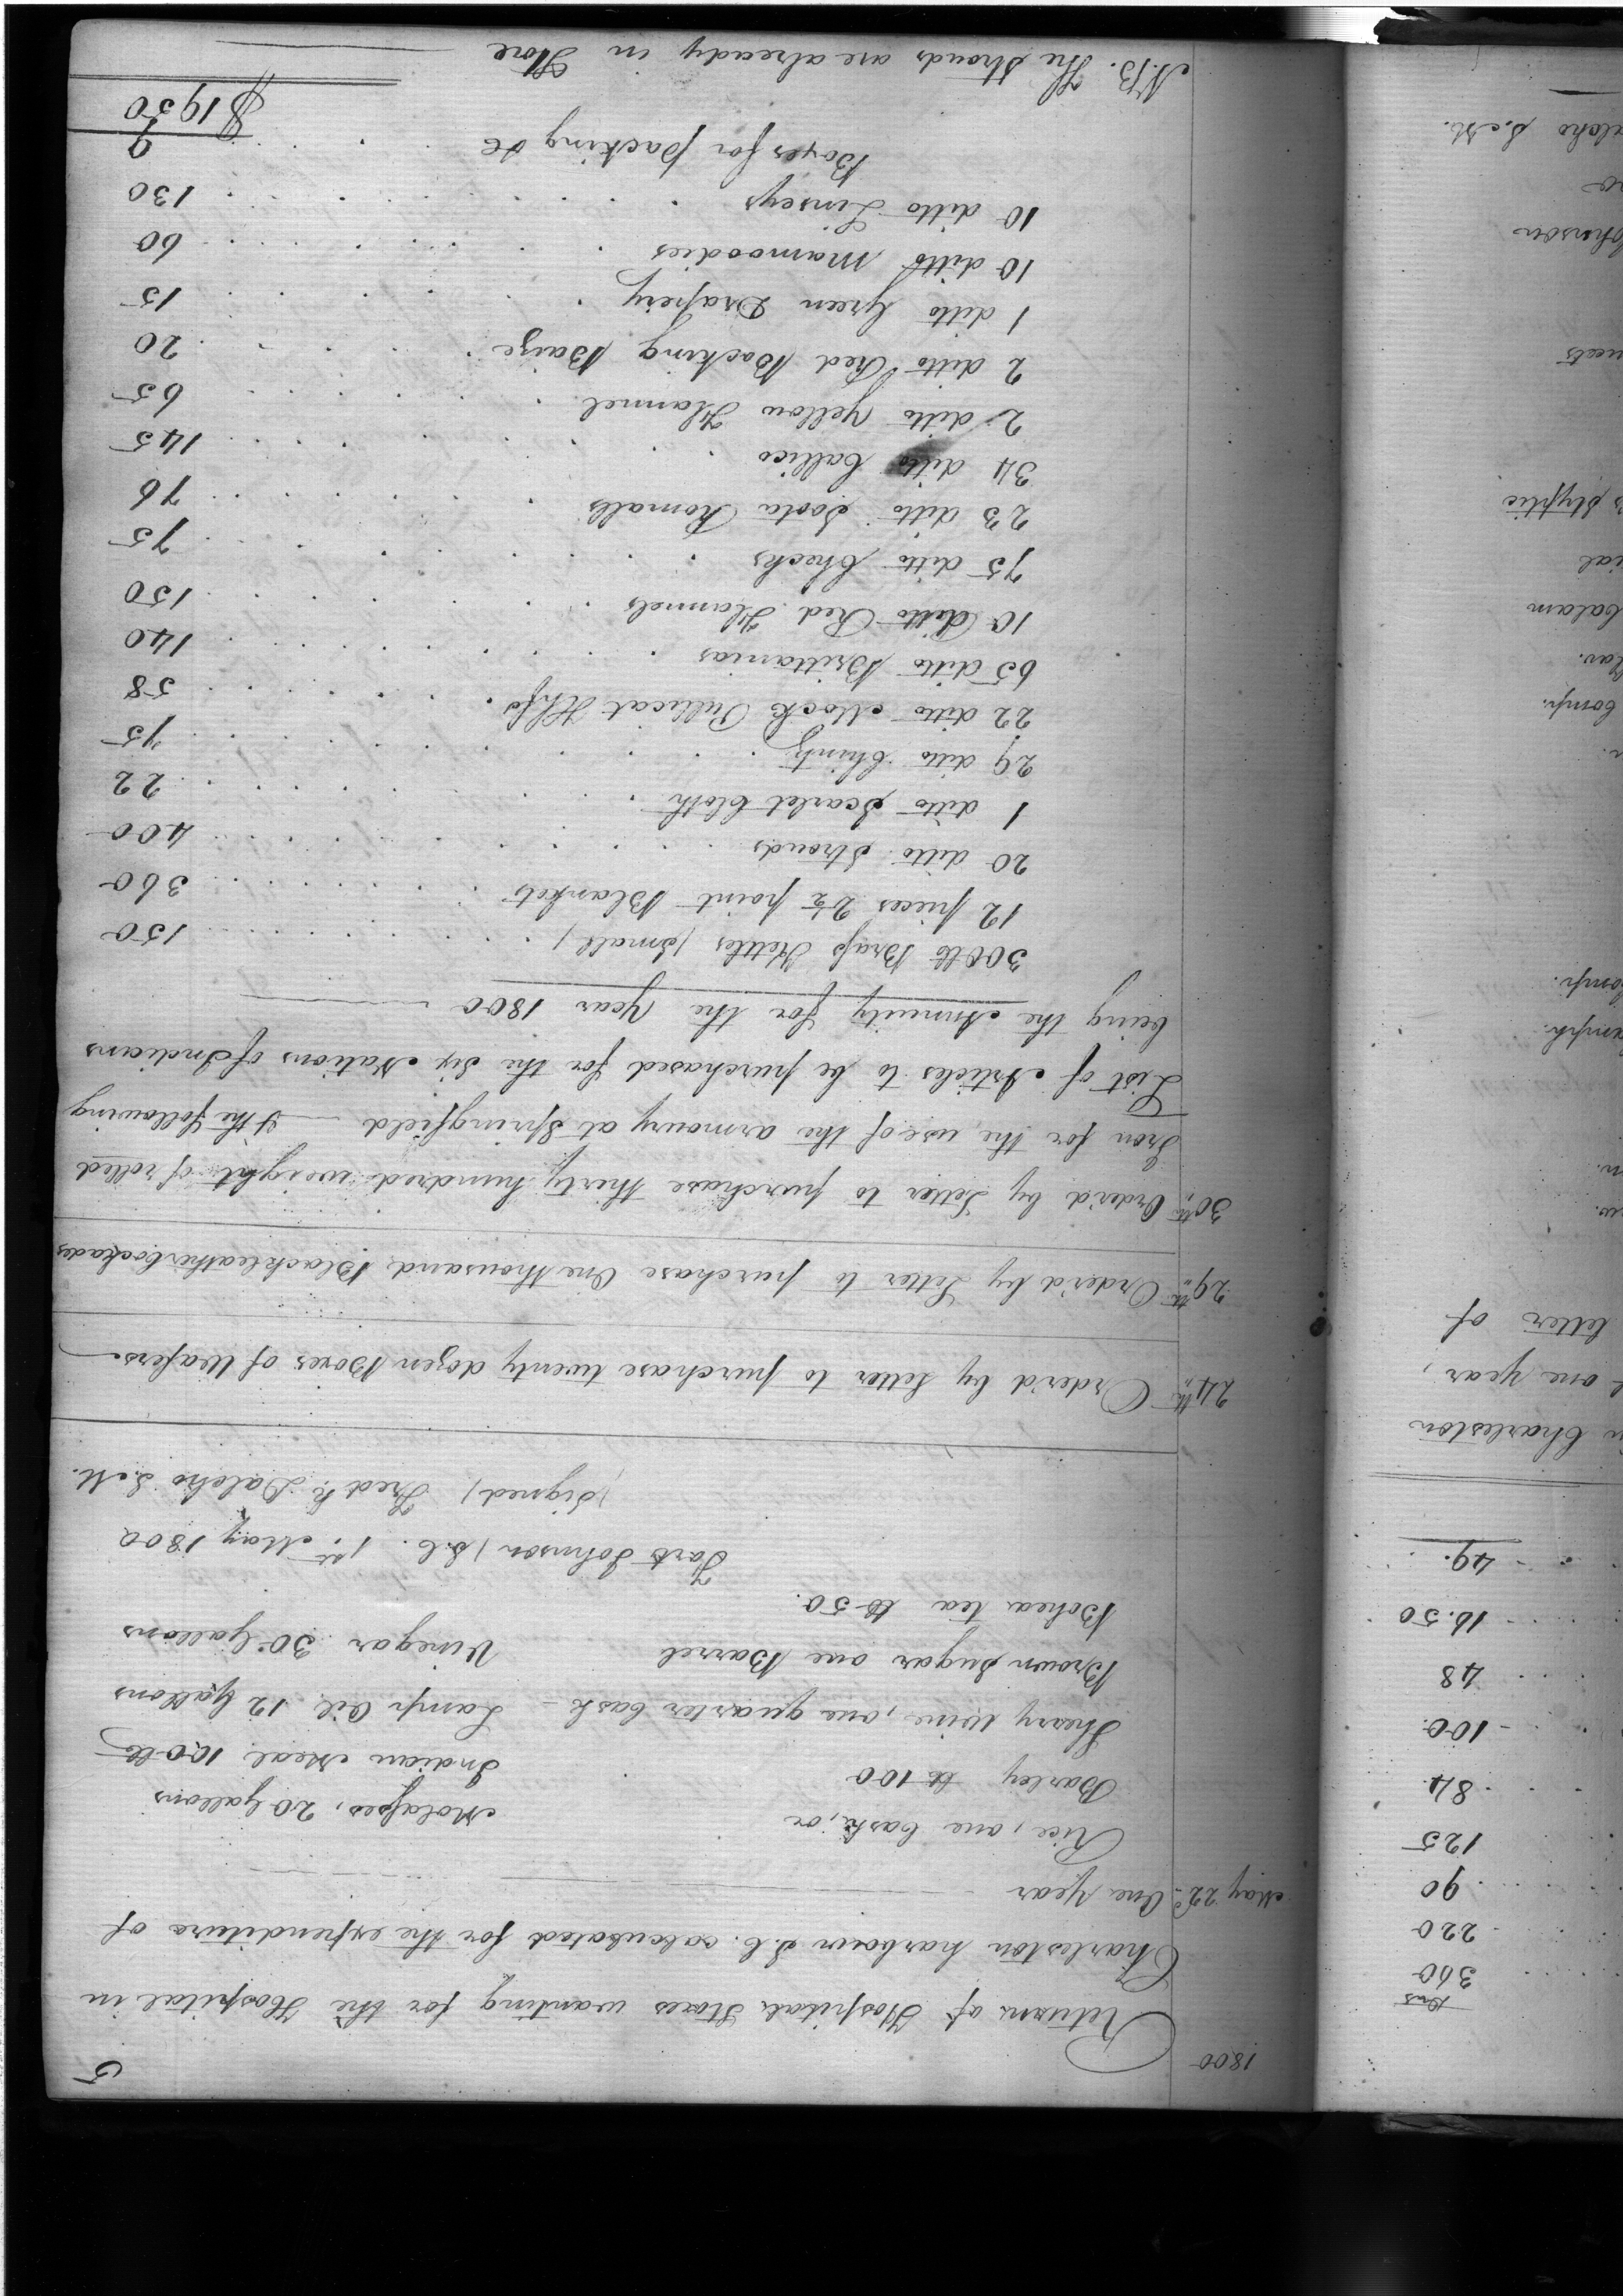 5
1800
Return of Hospital Stores wanting for the Hospital in
Charleston harbour S.C. calculated for the expenditure of
May 22d One Year
Rice, one Cask, or Molasses, 20 Gallons
Barley lb 100 Indian Meal 100 lb
Sherry Wine, one quarter Cask - Lamp Oil 12 Gallons
Brown Sugar one Barrel Vinegar 30 Gallons
Bohea tea lb 50.
Fort Johnson, S.C. 1st May 1800
(signed) Fredk. Dalcho S.M.
24th Order'd by Letter to purchase twenty dozen Boxes of Wafers
29th Order'd by Letter to purchase One thousand Black leather Cockades
30th Order'd by Letter to purchase thirty hundred weight of rolled
Iron for the use of the armoury at Springfield & the following
List of Articles to be purchased for the Six Nations of Indians
being the Annuity for the Year 1800
300 lb Brass Kettles (Small) 150
12 pieces 2½ point Blankets 360
20 ditto Strouds 400
1 ditto Scarlet Cloth 22
29 ditto Chintz 75
22 ditto Mock Pullicat Hkfs 58
65 ditto Brittanias 140
10 ditto Red Flannels 150
75 ditto Checks 75
23 ditto Soota Romalls 76
34 ditto Callico 145
2 ditto Yellow Flannel 65
2 ditto Red Backing Baize 20
1 ditto Green Drapery 15
10 ditto Mamoodies 60
10 ditto Linseys 130
Boxes for packing &c 9
$1950
N.B. The Strouds are already in Store
360
220
90
125
84
100
48
16.50
49.
Charleston
one year,
letter of